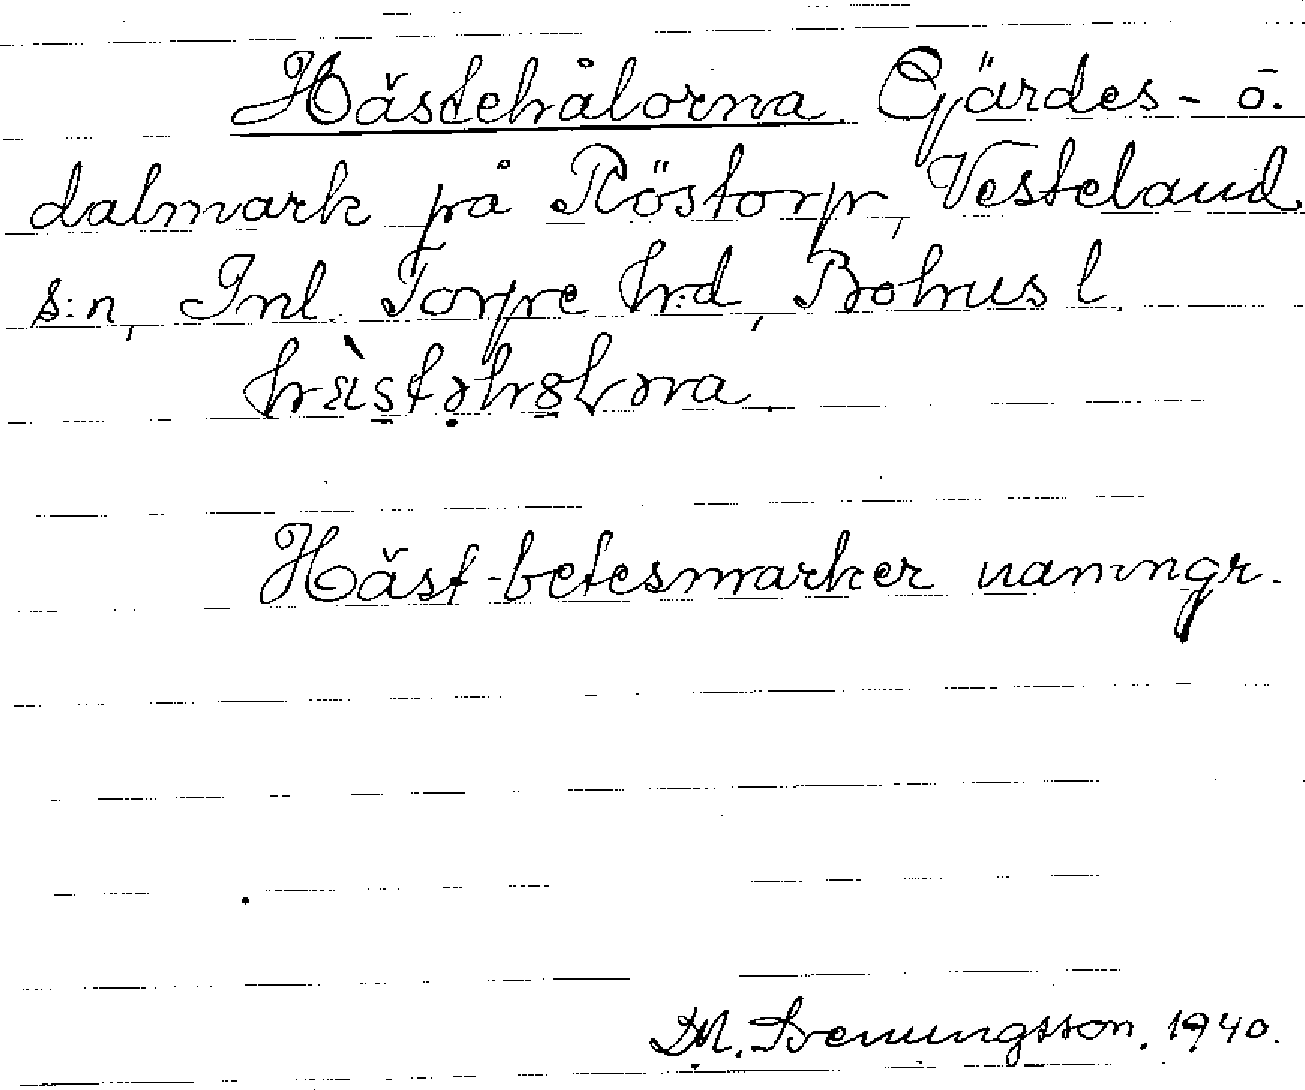 Hästehålorna. Gärdes- o.
dalmark på Röstorp, Vesteland
s:n, Inl. Torpe h:d, Bohus l.
Häst-betesmarker namngr.
M. Svenungsson. 1940.